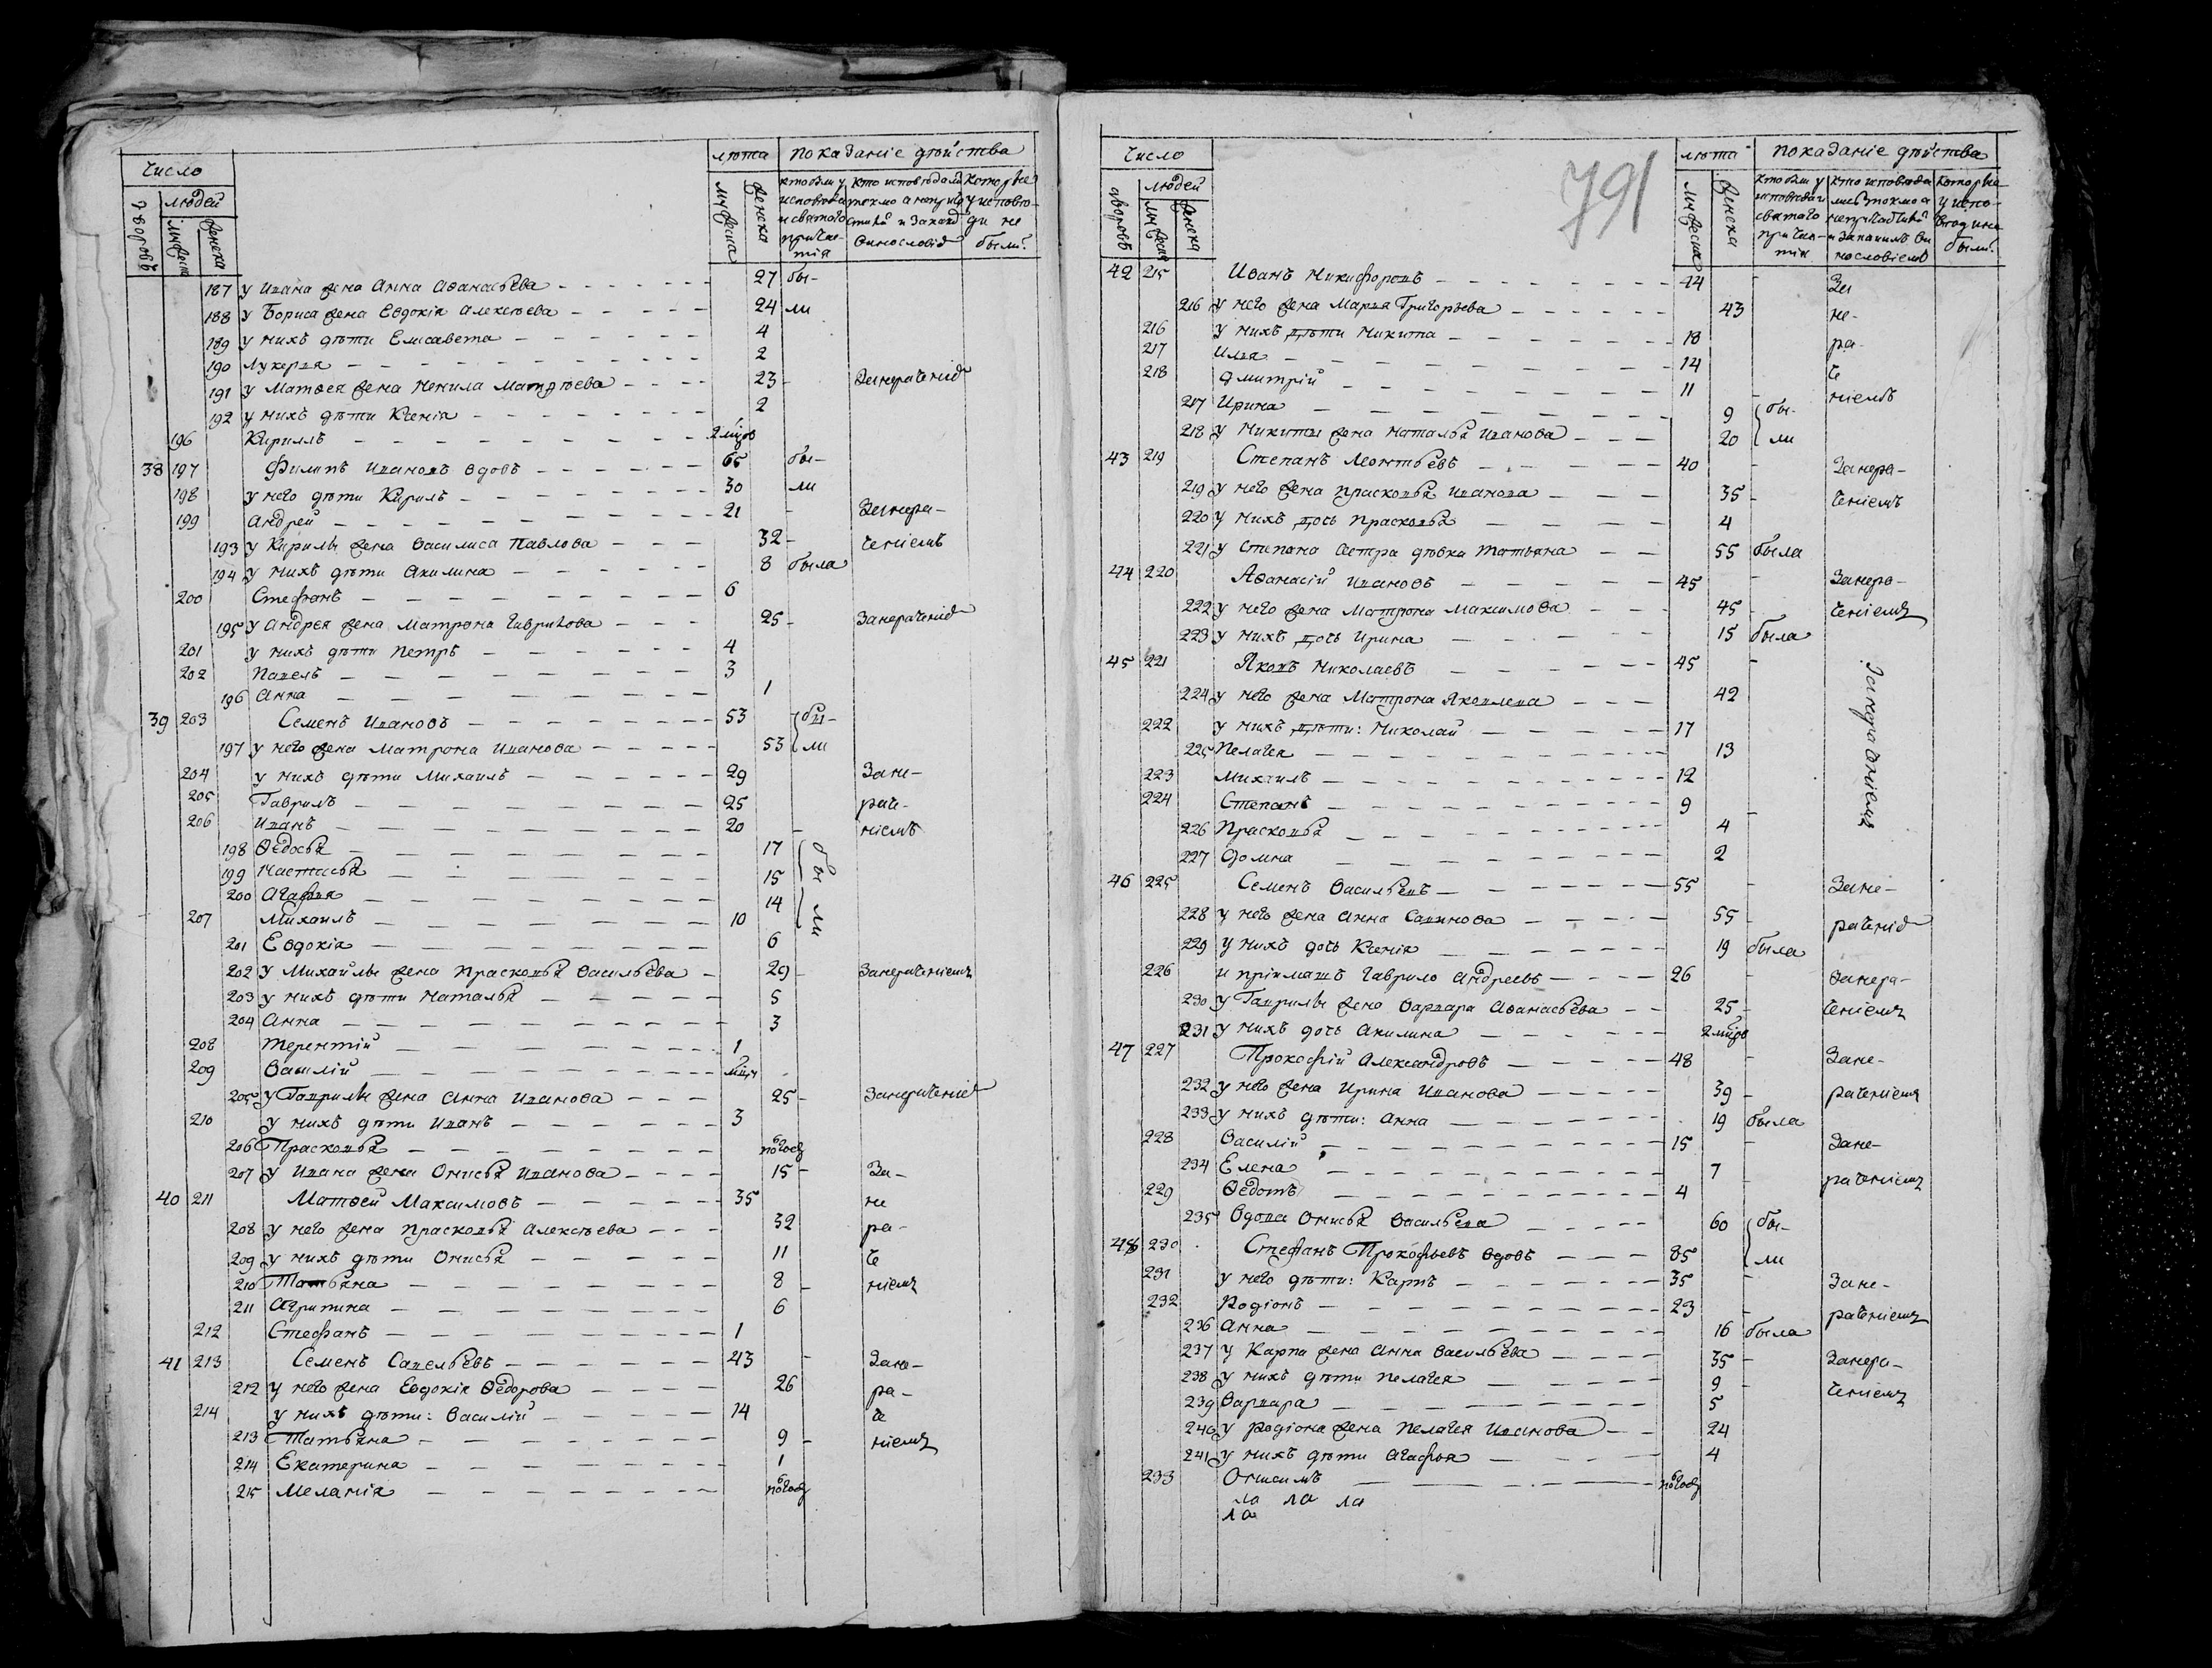 Число
лѣта показаніе дѣйства
дворовъ людей
мужеска женска
мужеска женска
187 у Ивана жена Анна Аѳанасьева 27 бы-
188 у Бориса жена Евдокія Алексѣева 24 ли
189 у нихъ дѣти Елисавета 4
190 Лукерья 2
191 у Матѳея жена Ненила Матвѣева 23 - Занераченіе
192 у нихъ дѣти Ксенія 2
196 Кириллъ
38 197 Филипъ Ивановъ вдовъ 65 бы-
198 у него дѣти Кирилъ 30 ли
199 Андрей 21 - Занера-
193 у Кирилы жена Василиса Павлова 32 - ченіемъ
194 у нихъ дѣти Акилина 8 была
200 Стефанъ 6
195 у Андрея жена Матрона Гаврилова 25 - Занераченіе
201 у нихъ дѣти Петръ 4
202 Павелъ 3
196 Анна 1
39 203 Семенъ Ивановъ 53 бы-
197 у него жена Матрона Иванова 53 ли
204 у нихъ дѣти Михаилъ 29 Зане-
205 Гаврилъ 25 раче-
206 Иванъ 20 - ніемъ
198 Ѳедосья 17 бы
199 Настасья 15
200 Агафья 14 ли
207 Михаилъ 10
201 Евдокія 6
202 у Михайлы жена Прасковья Васильева 29 - Занераченіемъ
203 у нихъ дѣти Наталья 5
204 Анна 3
208 Терентій 1
209 Василій
205 у Гаврилы жена Анна Иванова 25 - Занераченіе
210 у нихъ дѣти Иванъ 3
206 Прасковья полгода
207 у Ивана жена Онисья Иванова 15 - За-
40 211 Матѳей Максимовъ 35 не
208 у него жена Прасковья Алексѣева 32 ра-
209 у нихъ дѣти Онисья 11 че
210 Татьяна 8 - ніемъ
211 Агрипина 6
212 Стефанъ 1
41 213 Семенъ Савельевъ 43 - Зане-
212 у него жена Евдокія Ѳедорова 26 ра-
214 у нихъ дѣти: Василій 14 че
213 Татьяна 9 - ніемъ
214 Екатерина 1
215 Меланія полгода
791
Число
лѣта показаніе дѣйства
дворовъ людей
мужеска женска
мужеска женска
42 215 Иванъ Никифоровъ 44 - За
216 у него жена Марья Григорьева 43 не-
216 у нихъ дѣти Никита 18 ра-
217 Илья 14 че
218 Дмитрій 11 - ніемъ
217 Ирина 9 бы-
218 у Никиты жена Наталья Иванова 20 ли
43 219 Степанъ Леонтьевъ 40 - Занера-
219 у него жена Прасковья Иванова 35 - ченіемъ
220 у нихъ дочь Прасковья 4
221 у Степана сестра дѣвка Татьяна 55 была
44 220 Аѳанасій Ивановъ 45 - Занера-
222 у него жена Матрона Максимова 45 - ченіемъ
223 у нихъ дочь Ирина 15 была
45 221 Яковъ Николаевъ 45 -
224 у него жена Матрона Яковлева 42
222 у нихъ дѣти: Николай 17
225 Пелагея 13
Занераченіемъ
223 Михаилъ 12
224 Степанъ 9 -
226 Прасковья 4
227 Домна 2
46 225 Семенъ Васильевъ 55 - Зане-
228 у него жена Анна Савинова 55 - раченіе
229 у нихъ дочь Ксенія 19 была
226 и пріимашъ Гаврило Андреевъ 26 - Занера-
230 у Гаврилы жена Варвара Аѳанасьева 25 - ченіемъ
231 у нихъ дочь Акилина
47 227 Прокофій Александровъ 48 - Зане-
232 у него жена Ирина Иванова 39 - раченіемъ
233 у нихъ дѣти: Анна 19 была
228 Василій 15 - Зане-
234 Елена 7 - раченіемъ
229 Ѳедотъ 4
235 Вдова Онисья Васильева 60 бы-
48 230 Стефанъ Прокофьевъ вдовъ 85 ли
231 у него дѣти: Карпъ 35 - Зане-
232 Родіонъ 23 - раченіемъ
236 Анна 16 была
237 у Карпа жена Анна Васильева 35 - Занера-
238 у нихъ дѣти Пелагея 9 - ченіемъ
239 Варвара 5
240 у Родіона жена Пелагея Иванова 24
241 у нихъ дѣти Агафья 4
233 Онисимъ полгода
ла ла ла
ла